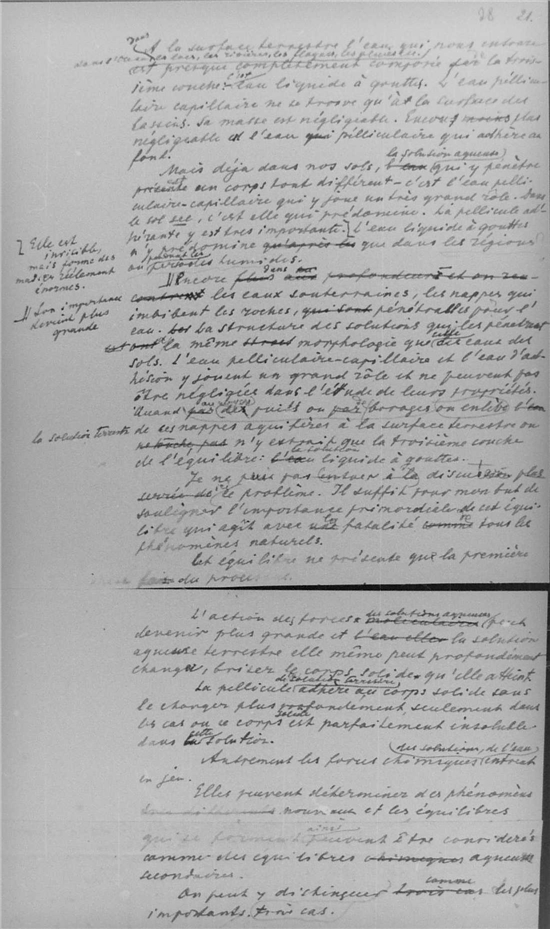 28 21.
A la surface terrestre l'eau, qui nous entoure
dans les lacs, les rivières, les fleuves, les pluies etc.
est presque complètement composée par la trois-
ième couche: l'eau liquide à gouttes. L'eau pellicu-
laire capillaire ne se trouve qu'à la surface des
bassins. Sa masse est négligeable. Encore moins plus
négligeable est l'eau qui pelliculaire qui adhère au
fond.
Mais déja dans nos sols, la solution aqueuse qui y pénètre
présente est un corps tout différent – c'est l'eau pelli-
culaire-capillaire qui y joue un très grand rôle. Dans
le sol sec, c'est elle qui prédomine. La pellicule ad-
hérante y est très importante. L'eau liquide à gouttes
n'y prédomine qu'après les que dans les régions
ou humides.
Elle est
invisible,
mais forme des
masses réellement
énormes.
Son importance
devient plus
grande
Encore plus dans aux profondeurs
les eaux souterraines, les nappes qui
imbibent les roches, qui sont pénétrables pour l'
eau. La structure des solutions qui les pénètrent
ont la même morphologie que cette des eaux des
sols. L'eau pelliculaire-capillaire et l'eau d'ad-
hésion y jouent un grand rôle et ne peuvent pas
être négligées dans l'étude de leurs propriétés.
Quand par des puits ou par forages on enlève
la solution terrestre de ces nappes aquifères à la surface terrestre on
n'y extrait que la troisième couche
de l'équilibre: l'eau la solution liquide à gouttes.
Je ne puis pas entrer à la discussion plus
serrée de ce problème. Il suffit pour mon but de
souligner l'importance primordiale de cet équi-
libre qui agit avec une fatalité comme tous les
phénomènes naturels.
Cet équilibre ne présente que la première
du processus.
L'action des forces moléculaires des solutions aqueuses peut
devenir plus grande et l'eau elle la solution
aqueuse terrestre elle même peut profondément
changer, briser le corps solide qu'elle atteint.
La pellicule de solution terrestre adhère au corps solide sans
le changer plus profondement, seulement dans
les cas ou ce corps solide est parfaitement insoluble
dans cette solution.
Autrement les forces chimiques des solutions, de l'eau entrent
en jeu.
Elles peuvent déterminer des phénomènes
nouveaux et les équilibres
qui se forment ainsi peuvent être considerés
comme des équilibres chimiques aqueux
secondaires.
On peut y distinguer trois cas comme les plus
importants trois cas.